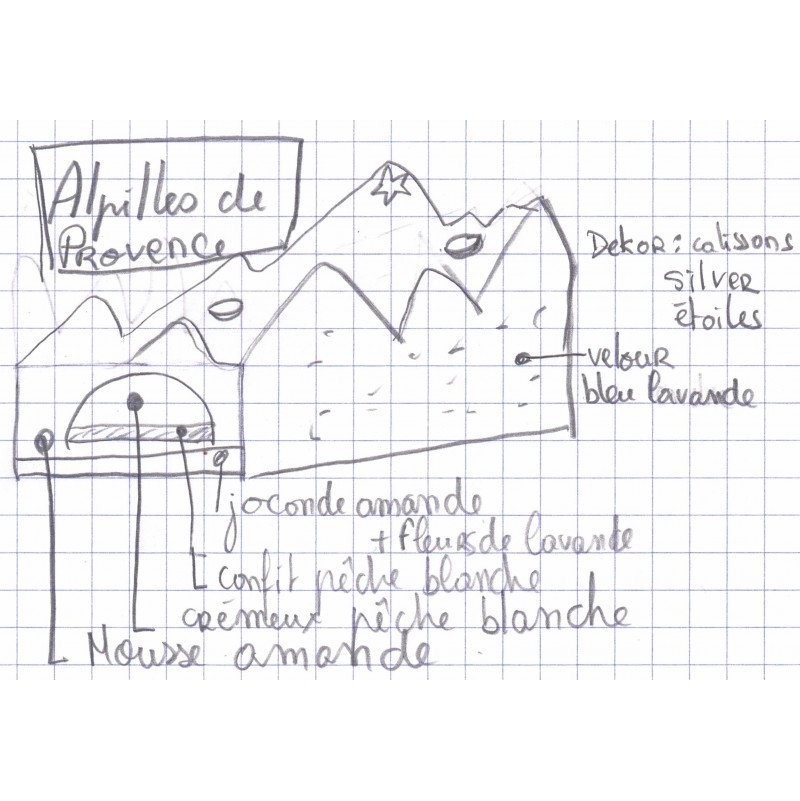 Alpilles de
PROVENCE
DekoR : calissons
silver
étoiles
velour
bleu lavande
joconde amande
+ fleurs de lavande
confit pêche blanche
crémeux pêche blanche
Mousse amande